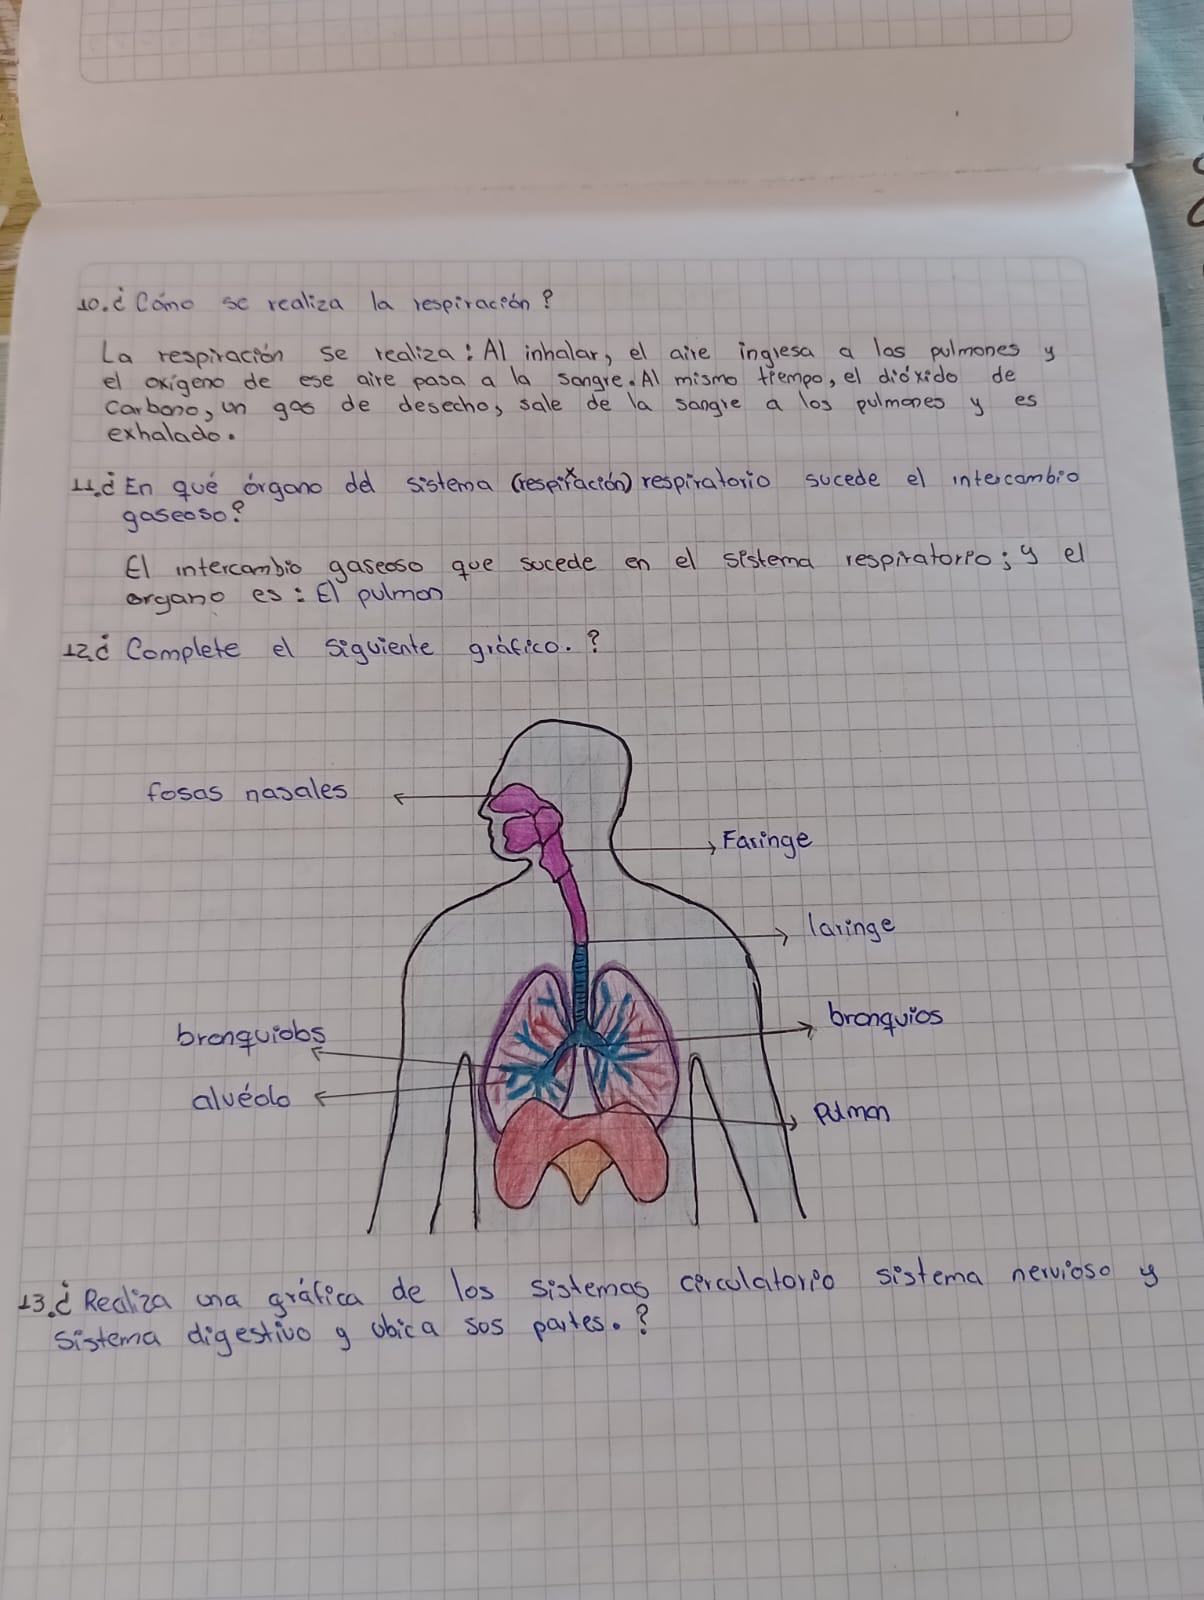 10.¿Cómo se realiza la respiración?
La respiración se realiza: Al inhalar, el aire ingresa a los pulmones y
el oxígeno de ese aire pasa a la sangre. Al mismo tiempo, el dióxido de
carbono, un gas de desecho, sale de la sangre a los pulmones y es
exhalado.
11.¿En qué órgano del sistema (respiración) respiratorio sucede el intercambio
gaseoso?
El intercambio gaseoso que sucede en el sistema respiratorio; y el
organo es: El pulmon
12.¿Complete el siguiente gráfico.?
fosas nasales
Faringe
laringe
bronquios
bronquiolos
alvéolo
Pulmon
13.¿Realiza una gráfica de los sistemas circulatorio sistema nervioso y
sistema digestivo y ubica sus partes.?